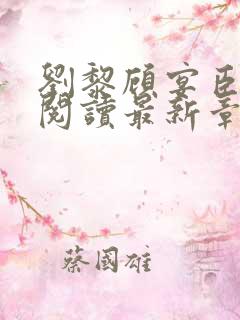 劉黎顧宴臣
閱讀最新章
蔡國雄